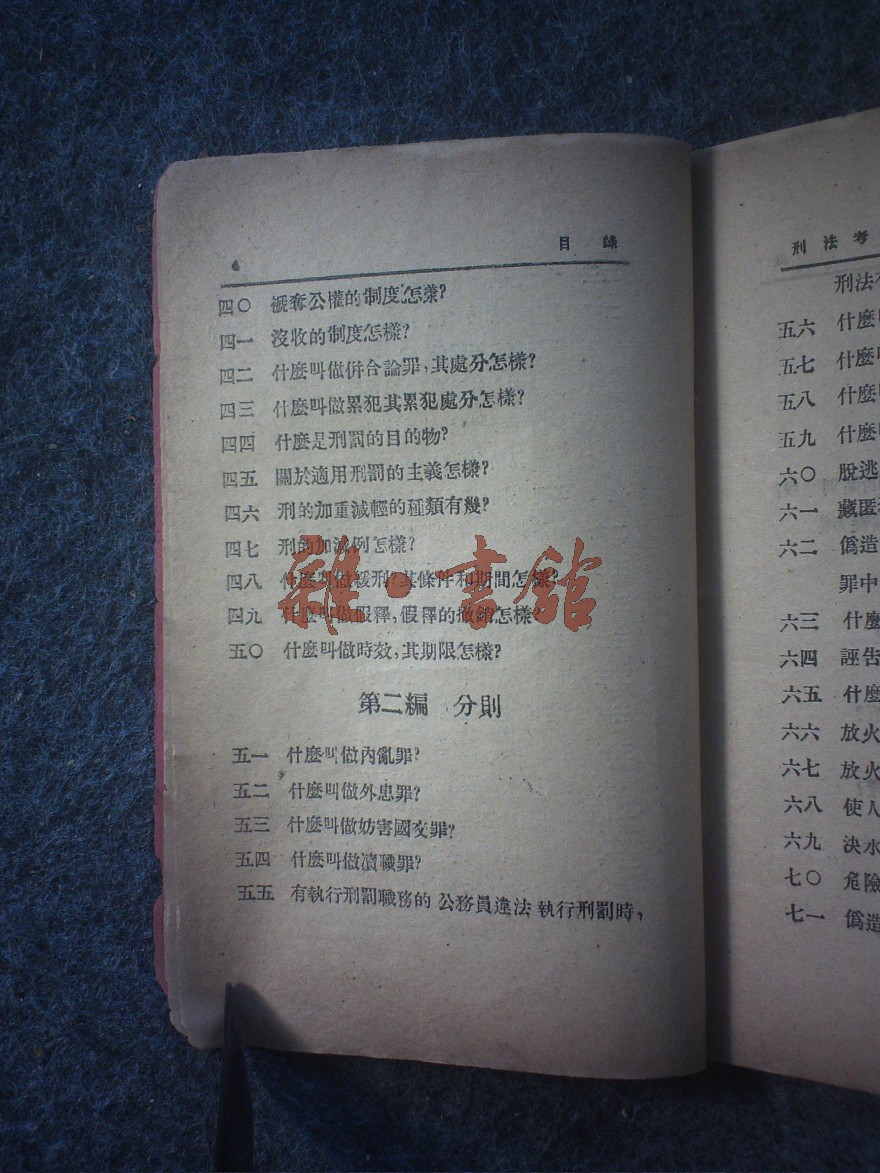 目錄
四〇 褫奪公權的制度怎樣?
四一 沒收的制度怎樣?
四二 什麼叫做併合論罪,其處分怎樣?
四三 什麼叫做累犯其累犯處分怎樣?
四四 什麼是刑罰的目的物?
四五 關於適用刑罰的主義怎樣?
四六 刑的加重減輕的種類有幾?
四七 刑的加減例怎樣?
四八 什麼叫做緩刑?其條件和期間怎樣?
四九 什麼叫做假釋,假釋的撤銷怎樣?
五〇 什麼叫做時效,其期限怎樣?
第二編 分則
五一 什麼叫做內亂罪?
五二 什麼叫做外患罪?
五三 什麼叫做妨害國交罪?
五四 什麼叫做瀆職罪?
五五 有執行刑罰職務的公務員違法執行刑罰時,
雜·書館
刑法考
刑法
五六 什麼
五七 什麼
五八 什麼
五九 什麼
六〇 脫逃
六一 藏匿
六二 僞造
罪中
六三 什麼
六四 誣告
六五 什麼
六六 放火
六七 放火
六八 使人
六九 決水
七〇 危險
七一 僞造